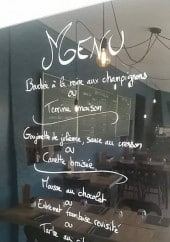 MENU
Bouchée à la reine aux champignons
ou
Terrine maison
Goujonette de julienne, sauce au cresson
ou
Canette braisée
Mousse au chocolat
ou
Entremet framboise revisité
ou
Tarte au